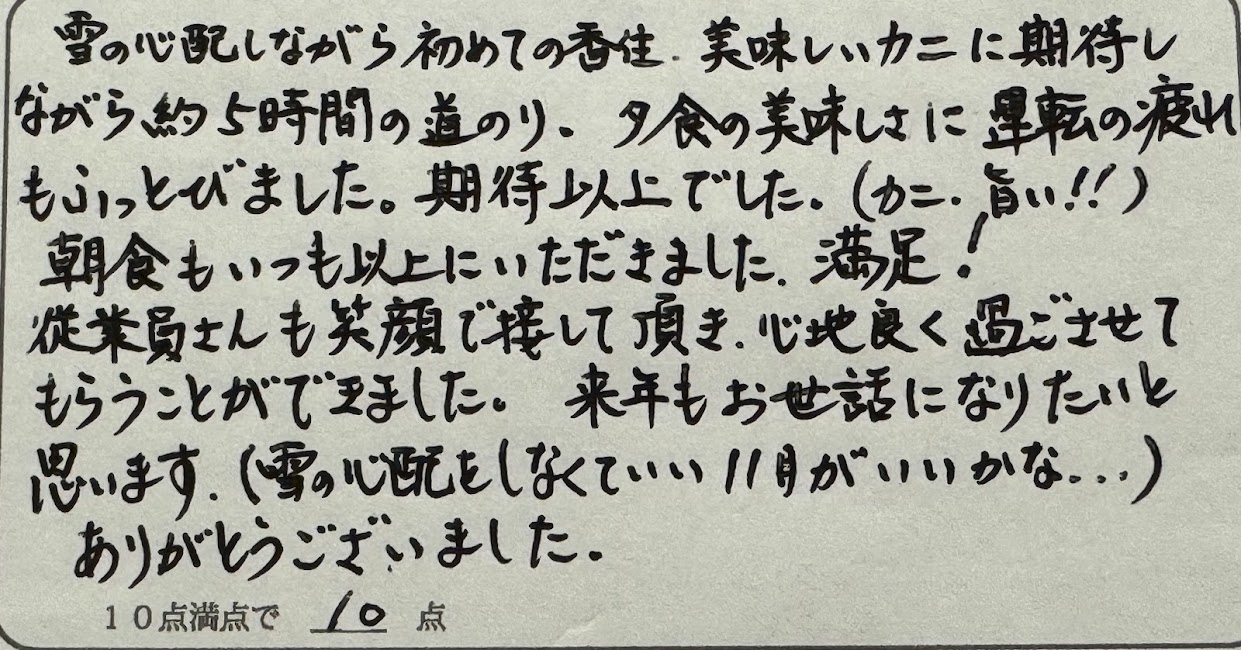 雪の心配しながら初めての香住. 美味しいカニに期待し
ながら約5時間の道のり. 夕食の美味しさに運転の疲れ
もふっとびました。期待以上でした.(カニ. 旨い!!)
朝食もいつも以上にいただきました. 満足!
従業員さんも笑顔で接して頂き. 心地良く過ごさせて
もらうことができました。 来年もお世話になりたいと
思います.(雪の心配をしなくていい11月がいいかな...)
ありがとうございました.
10点満点で 10 点